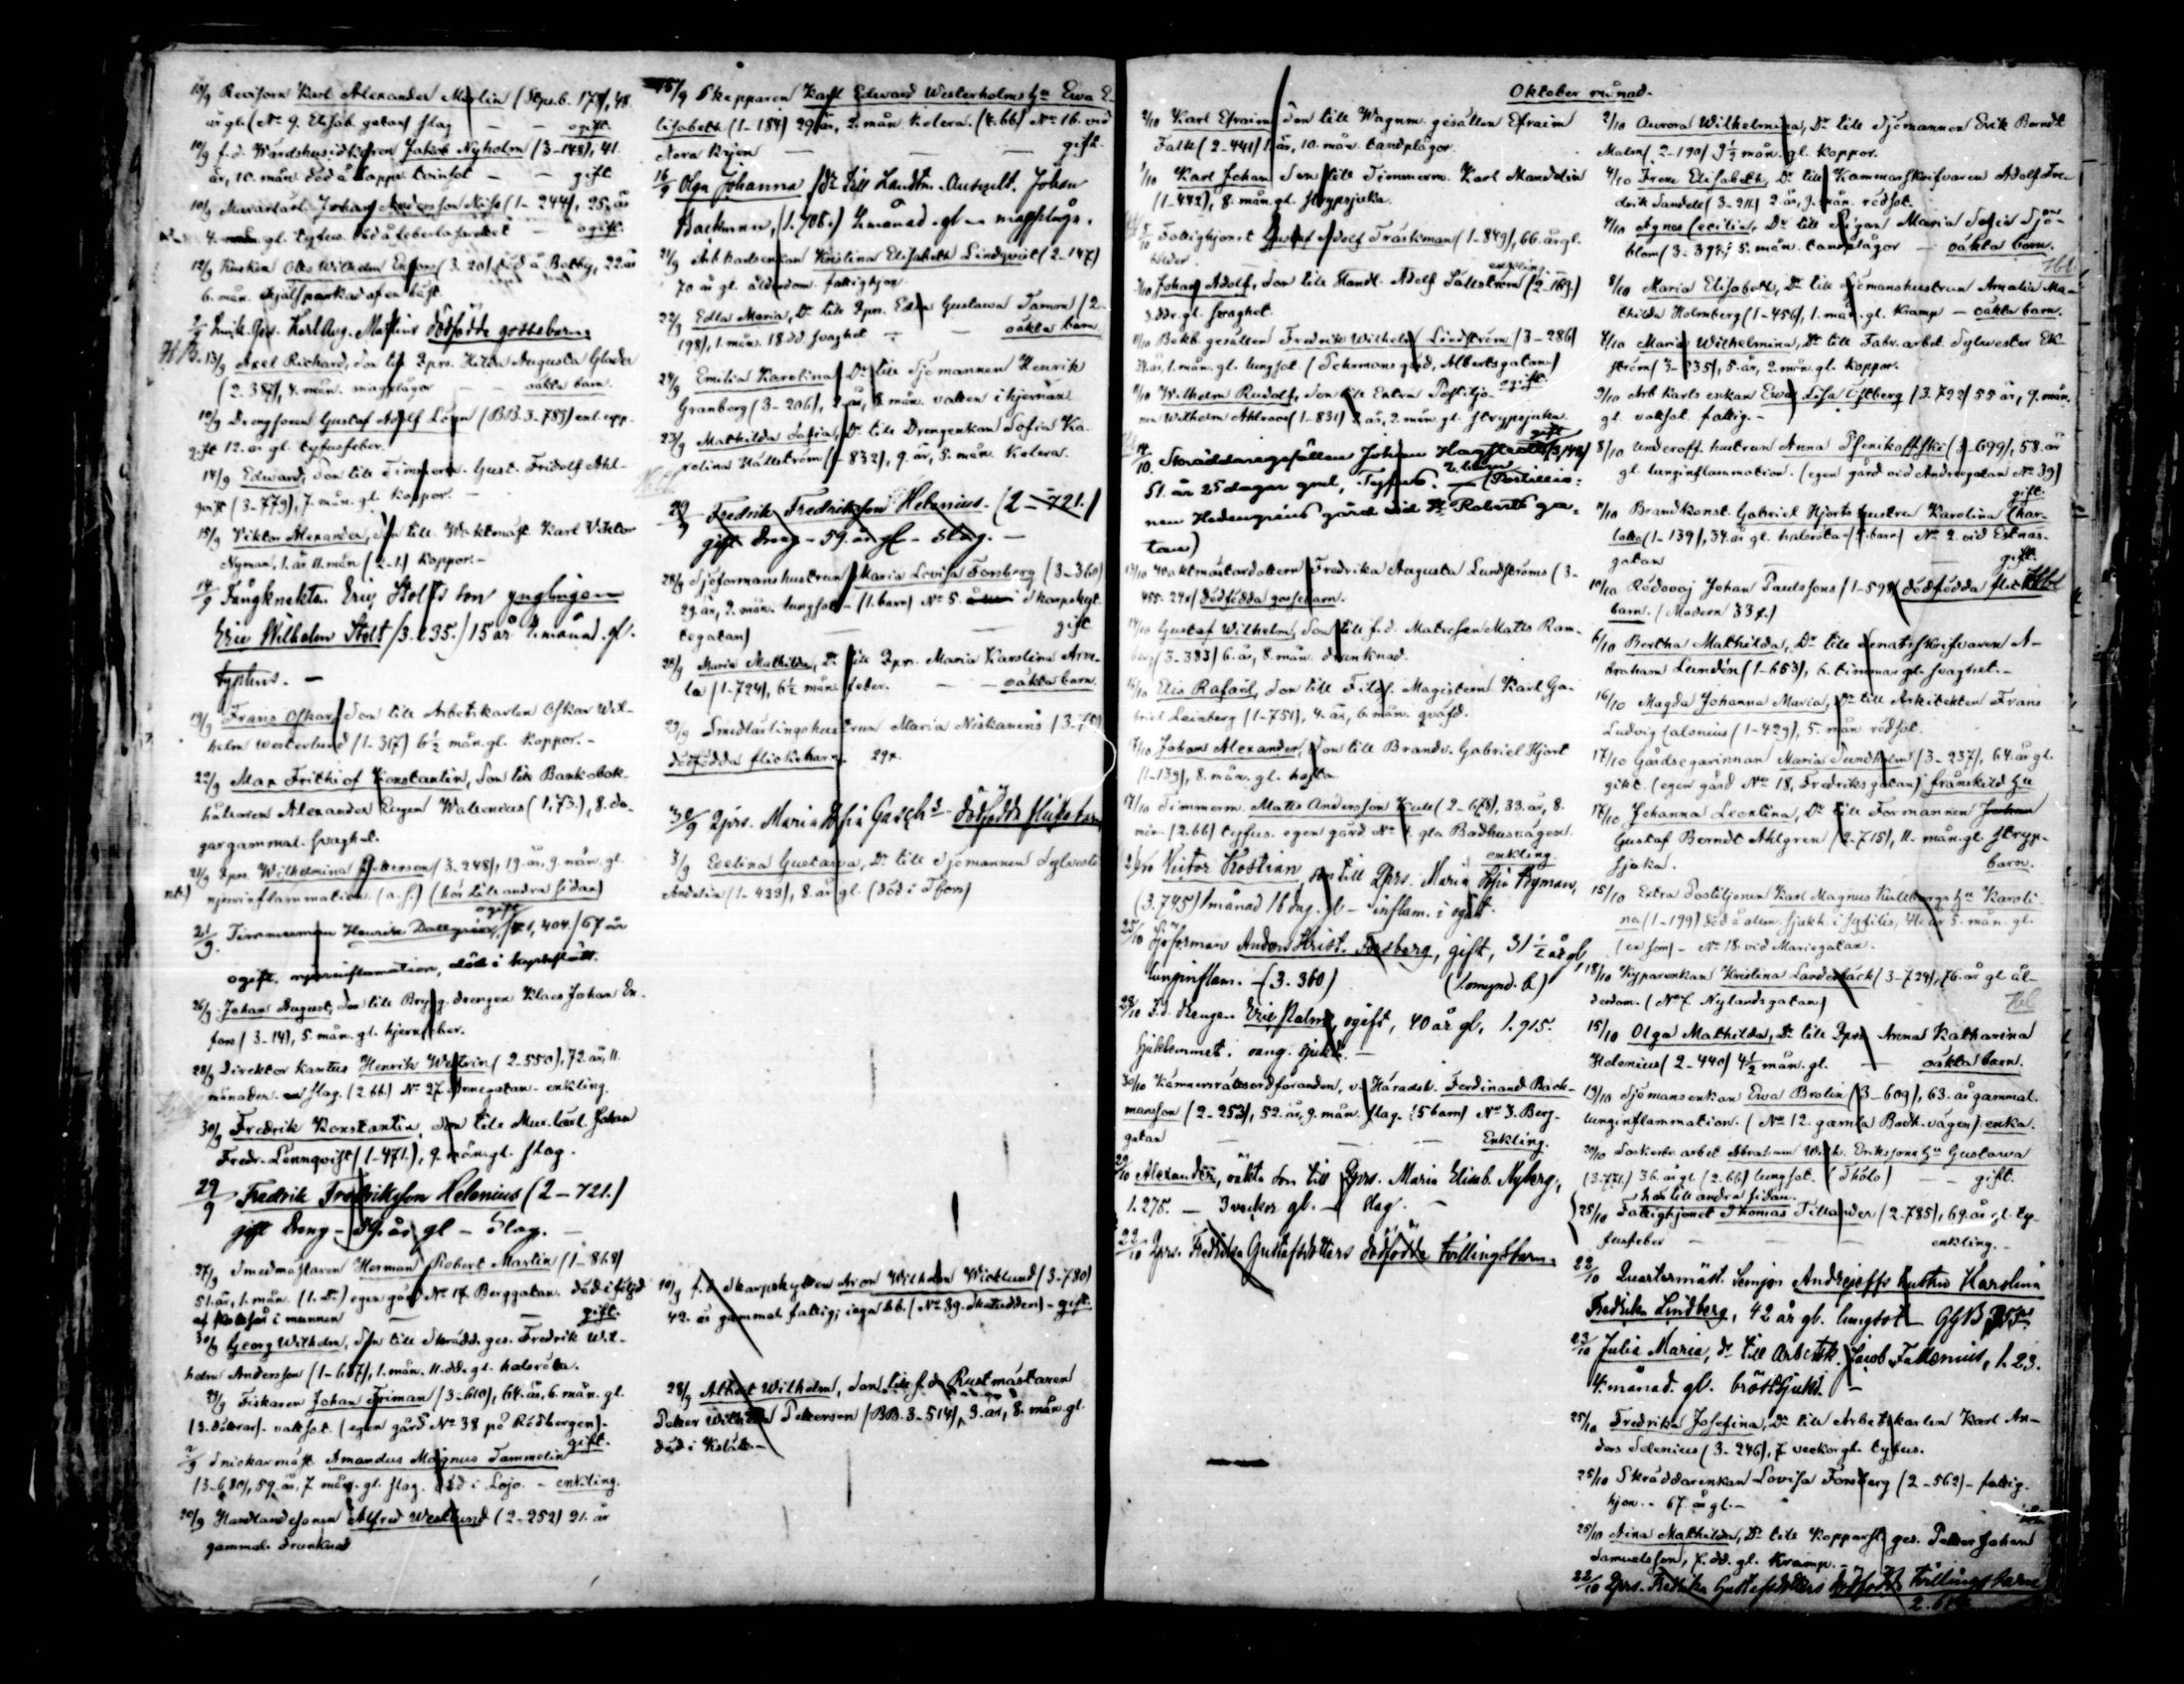 10/9 Revisorn Karl Alexander Merlin (
år gl. (No 9. Elisab. gatan) slag — — ogift.
10/9 f. d. Wärdshusidkaren Jakob Nyholm (3-148), 41.
år, 10. mån. död å — — gift
10/9 Murarlärl. Johan Andersson (1-244), 25. år
4. gl. tyfus. död å — ogift.
12/9 Kusken Otto Wilhelm (3. 20) död å Botby, 22. år
6. mån. ihjälsparkad af en häst.
Karl Aug. dödfödda gossebarn.
13/9 Axel Richard, son till Qprs. Hilda Augusta
(2. 387), 4. mån. magplågor — — oäkta barn.
Drengsonen Gustaf Adolf (BB. 3-783) enl. upp-
gift 12. år gl. tyfusfeber.
14/9 Edward, son till Timmerm. Gust. Fridolf Ahl-
qvist (3-779), 7. mån. gl. koppor. —
15/9 Viktor Alexander, son till Waktmäst. Karl Viktor
Nyman, 1. år 11. mån. (2-1.) koppor. —
14/9 Fångknekten Eric Stolts son ynglingen
Eric Wilhelm Stolt (3. 235.) 15 år 2. månad. gl.
typhus. —
19/9 Frans Oskar, son till Arbetskarlen Oskar Wil-
helm Westerlund (1-317) 6½ mån. gl. koppor. —
22/9 Max Frithiof Konstantin, son till Bankobok-
hållaren Alexander Eugen Wallenius (1. 73.), 8. da-
gar gammal. svaghet.
21/9 Qprs. Wilhelmina Petterson (3. 248), 19. år, 9. mån. gl.
njurinflammation. (hör till andra sidan)
21/9. Timmerman Henrik (1, 404.) 67 år
ogift. njurinflammation,
26/9. Johan August, son till Brygg. drengen Klaes Johan En-
fors (3-14), 5. mån. gl. hjernfeber.
28/9 Direktor kantus Henrik Westrin (2-550), 72. år, 11.
månader. slag. (2. bb) No 27. Annegatan. enkling.
30/9 Fredrik Konstantin, son till Mur. lärl. Johan
Fredr. Lennqvist (1-471.), 9. mån. gl. slag.
29/9 Fredrik Fredriksson Helenius (2-721.)
gift Dreng - 59. år gl - Slag. —
27/9 Smedmästaren Herman Robert Martin (1-868)
51. år, 1. mån. egen gård No 17. Berggatan. död i följd
af i munnen — gift.
30/9 Georg Wilhelm, son till Skrädd. ges. Fredrik Wil-
helm Andersson (1-657), 1. mån. 11. dd. gl. halsröta.
Fiskaren Johan Friman (3-610), 64. år, 6. mån. gl.
(3. döttrar). vattsot. (egen gård No 38 på Rödbergen) -
gift.
Snickarmäst. Amandus Magnus Tammelin
(3-680), 59. år, 7. mån. gl. slag. död i Lojo. — enkling.
20/9 Handlandesonen Alfred Westlund (2-252) 21. år
gammal. drunknad
15/9 Skepparen Karl Edward Westerholms hu Ewa E-
lisabeth (1-184) 29. år, 2. mån. Kolera. (4. bb) No 16. vid
Norra kajen — — gift.
16/9 Olga Johanna dr till Landtm. Auscult. Johan
Backman, (1. 708.) månad. gl — magplåga.
21/9 Arb. karlsenkan Kristina Elisabeth Lindqvist (2-147)
70 år gl. ålderdom. fattighjon
22/9 Edla Maria, Dr till Qprs. Edla Gustawa Tamm (2-
198), 1. mån. 18. dd. svaghet — — oäkta barn.
24/9 Emilia Karolina, Dr till Sjömannen Henrik
Granberg (3-206), 2. år, 8. mån. vatten i hjernan.
23/9 Mathilda Sofia, Dr till Drengenkan Sofia Ka-
rolina Hällström (1-832), 9. år, 5. mån. Kolera.
29/9 Fredrik Fredriksson Helenius. (2-721.)
gift Dreng - 59. år gl - Slag. —
28/9 Sjöformanshustrun Maria Lovisa Forsberg (3-360)
29. år, 2. mån. lungsot - (1. barn) No 5. i Skarpskyt-
tegatan) — gift
28/9 Maria Mathilda, Dr till Qprs. Maria Karolina Arve-
la (1-724), 6½ mån. feber. — — oäkta barn.
29/9 Smedlärlingshustrun Maria Niskanens (3.
dödfödda flickebarn. 29 r.
30/9 Qprs. Maria Sofia dödfödda flickebarn
Evelina Gustawa, Dr till Sjömannen Sylvester
Andelin (1-433), 8. år gl. (död i Esbo)
10/9 f. d. Skarpskytten Aron Wilhelm Wicklund (3-780)
42. år gammal fattig, (No 39. Skatudden) - gift.
28/9 Albert Wilhelm, son till f. d. Rustmästaren
Petter Wilhelm Petterson (BB. 3-514), 3. år, 8. mån. gl.
död i
Oktober månad.
2/10 Karl Efraim, son till Wagnm. gesällen Efraim
Falk (2-441) 1. år, 10. mån. tandplågor.
1/10 Karl Johan son till Timmerm. Karl Mandelin
(1-442), 8. mån. gl. strypsjuka.
5/10 Fattighjonet Gustaf Adolf Träskman (1-849), 66. år gl.
enkling.
Johan Adolf, son till Handl. Adolf Sällström (2-163.)
3. ddr. gl. svaghet.
11/10 Bokb. gesällen Fredrik Wilhelm Lindström (3-286)
34. år, 1. mån. gl. lungsot. (Sehrmans gård, Albertsgatan)
ogift.
11/10 Wilhelm Rudolf, son till Extra Postiljo-
nen Wilhelm Ahlroos (1-831) 2. år, 2. mån. gl. strypsjuka.
gift
14/10. Skräddaregesällen Johan Hagstedt
51. år 25 dagar gml, Tyfus. 2. barn — (Postillio-
nen Hedengréns gård vid St. Roberts ga-
tan)
13/10 Waktmästardottern Fredrika Augusta Lundströms (3-
455. 29 r) dödfödda gossebarn.
14/10 Gustaf Wilhelm, son till f. d. Matrosen Matts Ram-
berg (3-383) 6. år, 8. mån. drunknad.
15/10 Elis Rafaël, son till Filos. Magistern Karl Ga-
briel Leinberg (1-751), 4. år, 6. mån. qväfd.
Johans Alexander, son till Brandv. Gabriel Hjort
(1-139), 8. mån. gl. hosta
17/10 Timmerm. Matts Andersson (2-678), 33. år, 8.
mån. (2. bb) tyfus. egen gård No 4. gla Badhusvägen.
enkling
Victor Kostian, son till Qprs. Maria Sofia Nyman,
(3. 745) 1 månad 16 dag. gl - inflam. i
25/10 Sjöforman Anders Krist. Forsberg, gift, 31½ år gl,
lunginflam. - (3. 360) (1. omynd. b.)
28/10 F. d. drengen Eric Malm, ogift, 40 år gl, 1. 915.
Sjukhemmet. sjukd. —
30/10 Kämnersrättsordföranden, v. Häradsh. Ferdinand Back-
mansson (2-253), 52. år, 9. mån. slag. (5 barn) No 3. Berg-
gatan — — Enkling.
29/10 Alexander, oäkta son till Qprs. Maria Elisab. Nyberg,
1. 275. — 3 veckor gl. — slag. —
22/10 Qprs. Fredrika Gustafsdotters dödfödda tvillingsbarn.
2/10 Aurora Wilhelmina, Dr till Sjömannen Erik Berndt
Malm (2-190) 9½ mån. gl. koppor.
4/10 Irene Elisabeth, Dr till Kammarskrifvaren Adolf Fre-
drik Sandell (3-211) 2. år, 9. mån. rödsot.
4/10 Agnes Cecilia, Dr till Pigan Maria Sofia Sjö-
blom (3-374; 5. mån. tandplågor — oäkta barn.
8/10 Maria Elisabeth, Dr till Sjömanshustrun Amalia Ma-
thilda Holmberg (1-456), 1. mån. gl. kramp — oäkta barn.
4/10 Maria Wilhelmina, Dr till Fabr. arbet. Sylwester Ek-
ström (3-235), 5. år, 2. mån. gl. koppor.
9/10 Arb karls enkan Ewa Lisa Östberg (3. 792) 55 år, 9. mån.
gl. vattsot. fattig. -
8/10 Underoff. hustrun Anna (3-699), 58. år
gl. lunginflammation. (egen gård vid Andregatan No 39)
gift.
11/10 Brandkonst. Gabriel Hjorts hustru Karolina Char-
lotta (1-139), 34. år gl. halsröta - barn) No 2. vid Estnäs-
gatan — gift.
10/10 Rödovaj Johan Paulssons (1-598) dödfödda flicke
barn. (Modern 33 r.)
6/10 Bertha Mathilda, Dr till Senatsskrifvaren A-
braham Lundén (1-653), 6. timmar gl. svaghet. -
16/10 Magda Johanna Maria, Dr till Arkitekten Frans
Ludvig Calonius (1-429), 5. mån. rödsot.
17/10 Gårdsegarinnan Maria Sundholm (3-237), 64. år gl.
gikt. (egen gård No 18, Fredriksgatan) frånskild hu
17/10. Johanna Leontina, Dr till Formannen Johan
Gustaf Berndt Ahlgren (2-715), 11. mån. gl. stryp-
sjuka. barn.
15/10 Extra Postiljonen Karl Magnus Kullbergs hu Karoli-
na (1-199) död å allm. sjukh. i syfilis, 41. år 5. mån. gl.
(en son) - No 18 vid Mariegatan.
18/10 Kyparenkan Kristina Landenbäck (3-724), 76. år gl ål-
derdom. (No 7. Nylandsgatan)
15/10 Olga Mathilda, Dr till Qprs Anna Katharina
Helenius (2-440) 4½ mån. gl. — oäkta barn.
19/10 Sjömansenkan Ewa Brolin (3-609), 63. år gammal.
lunginflammation. (No 12. gamla Badh. vägen). enka.
20/10 Sockerbr. arbet. Abraham Wilh. Erikssons hu Gustawa
(3. 771.) 36. år gl. (2. bb) lungsot. (Thölö) — — gift.
hör till andra sidan.
25/10 Fattighjonet Thomas Tillander (2-785), 69. år gl. ty-
fusfeber — — enkling. -
22/10 Quartermäst. Semjon Andrejeffs hustru Karolina
Fredrika Lindberg, 42 år gl. lungsot —
23/10 Julia Maria, dr till Arbetsk. Jacob Fallenius, 1. 23.
4. månad. gl. bröstsjukd. —
25/10 Fredrika Josefina, Dr till Arbetskarlen Karl An-
ders Selenius (3-246), 7. veckor gl. tyfus.
25/10 Skräddarenkan Lovisa Forsberg (2-562) - fattig-
hjon. - 67. år gl. -
25/10 Aina Mathilda, Dr till Kopparsl. ges. Petter Johan
Samuelsson, 7. dd. gl. kramp. -
22/10 Qprs. Fredrika Gustafsdotters dödfödda tvillingsbarn